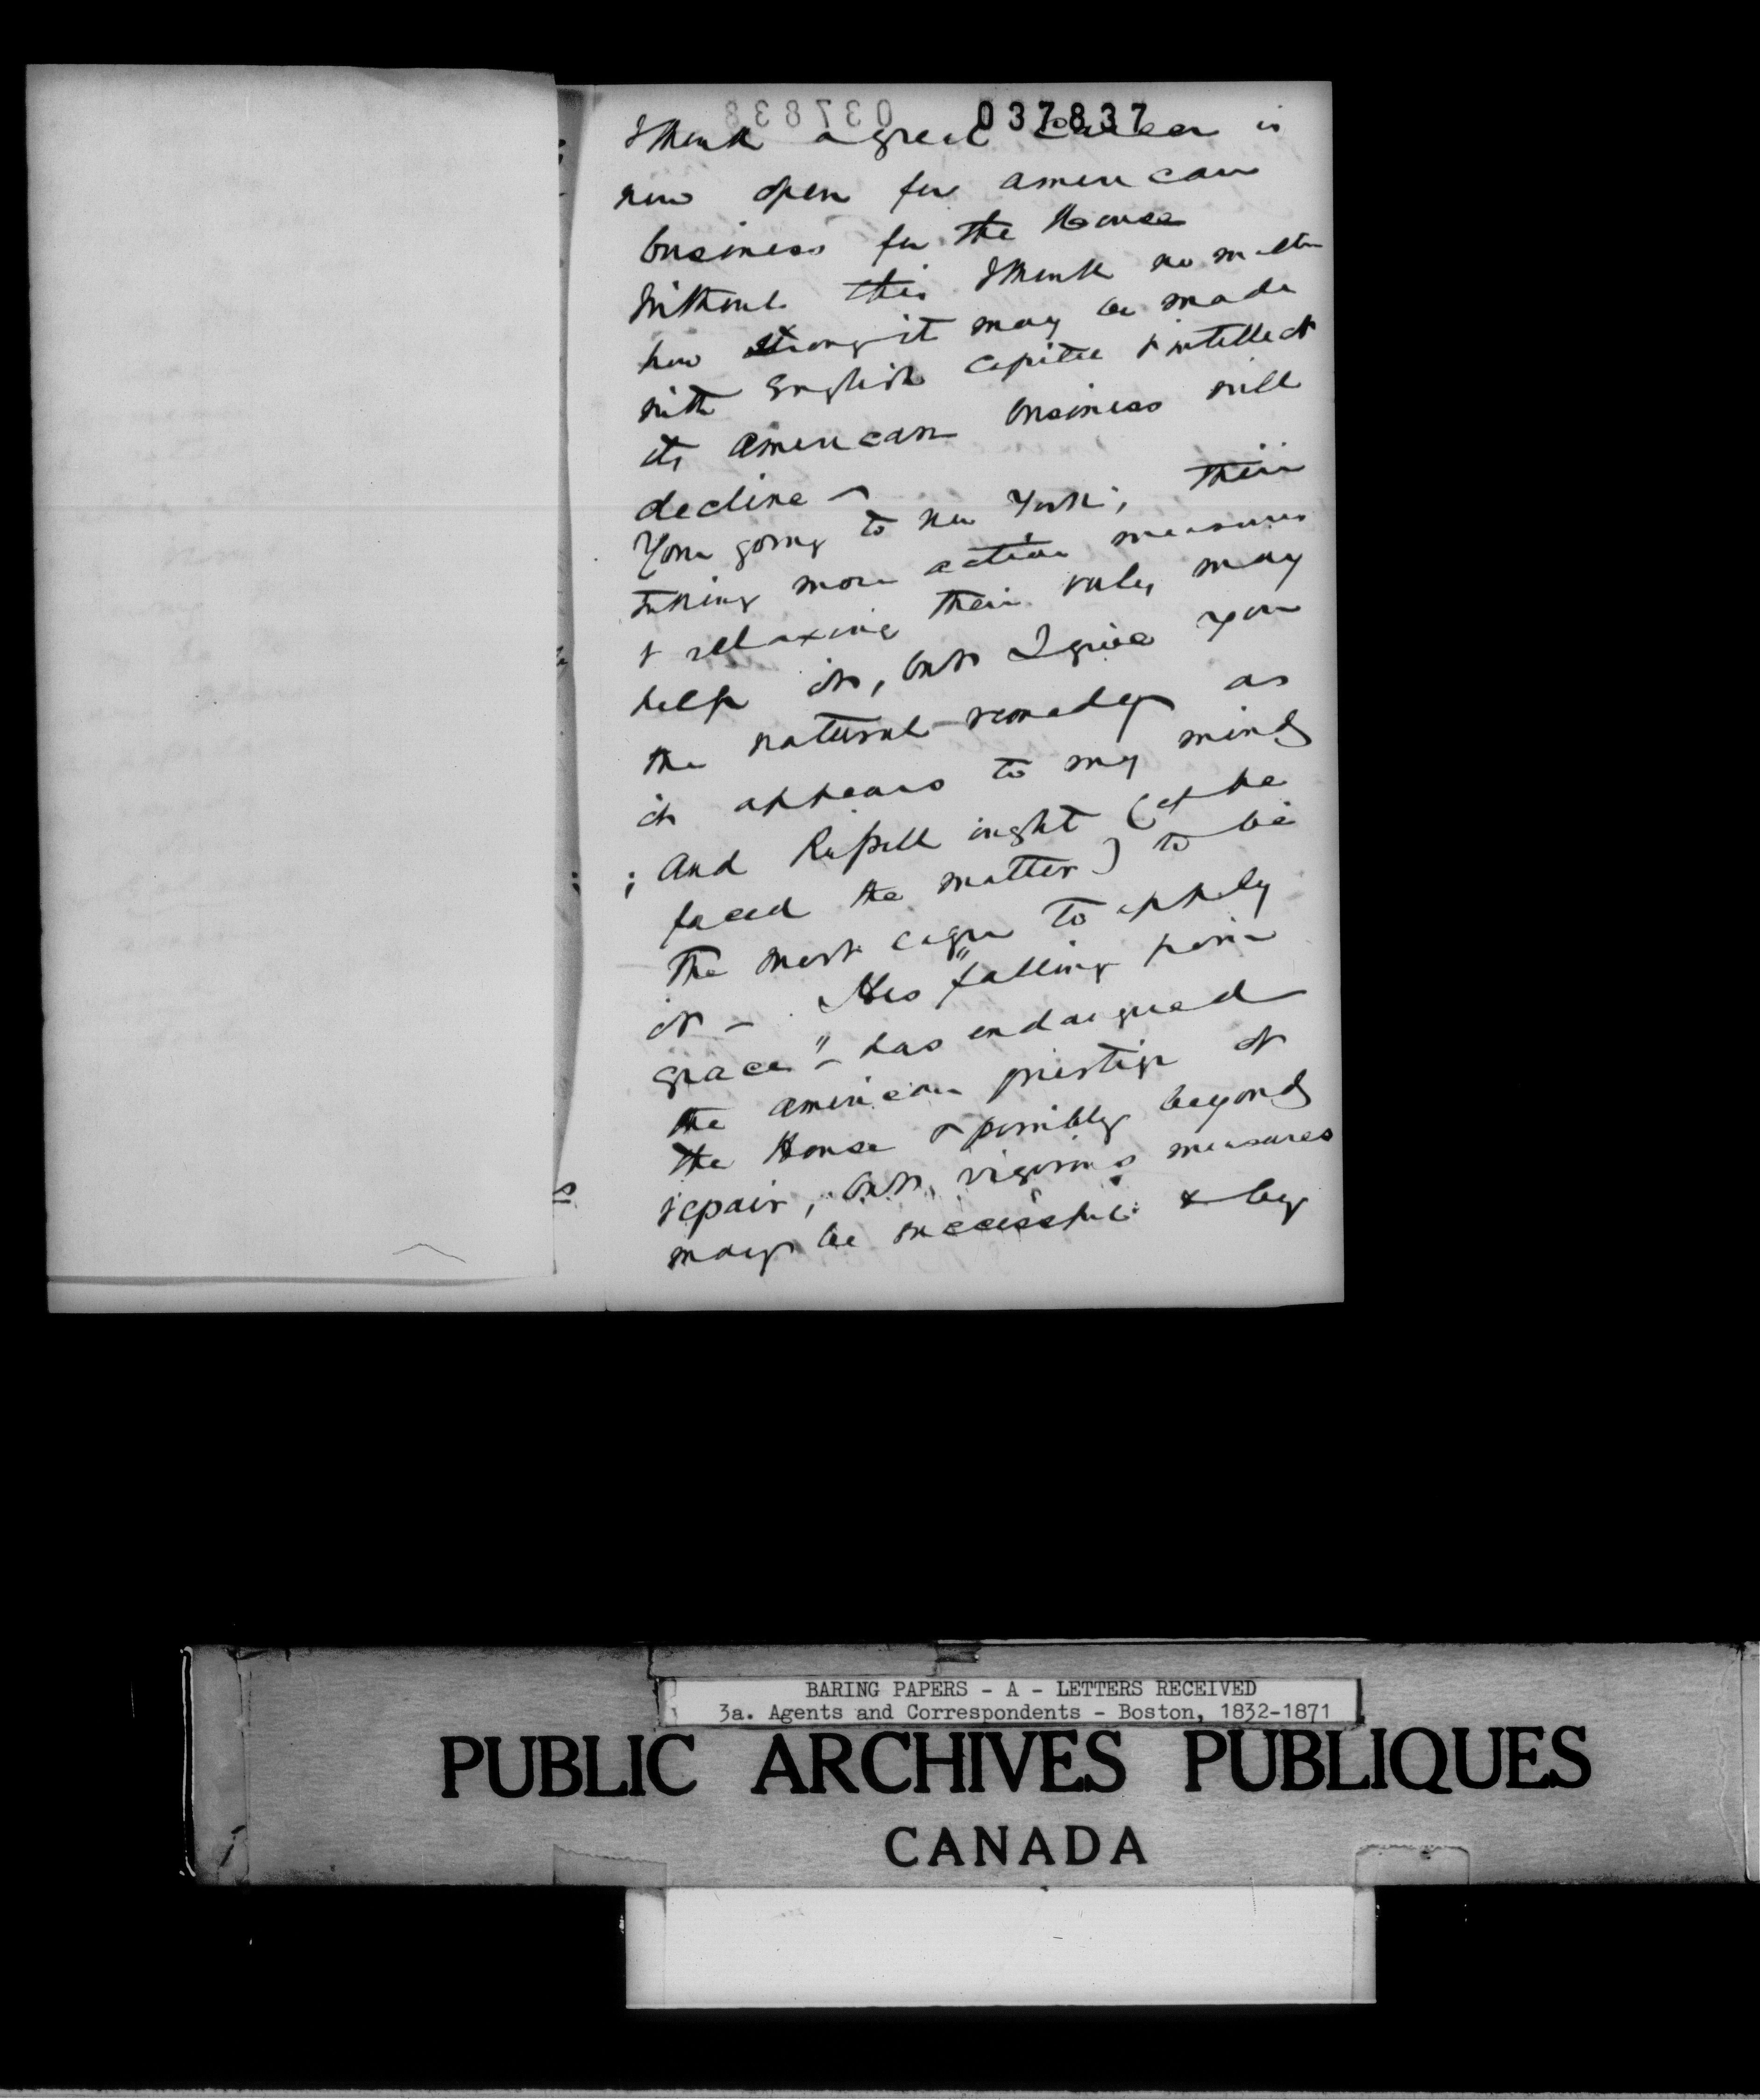 037838 037837
I think a great career is
now open for American
business for the House
Without this I think no matter
how strong it may be made
with English capital & intellect
its American business will
decline —
Your going to New York, their
taking more active measures
& relaxing their rules may
help it, but I give you
the natural remedy as
it appears to my mind
; And Russell ought (if he
faced the matter) to be
the most eager to apply
it — His "falling from
grace" — has endangered
the American prestige of
the House & possibly beyond
repair, but vigorous measures
may be successful & by
s
BARING PAPERS - A - LETTERS RECEIVED
3a. Agents and Correspondents - Boston, 1832-1871
PUBLIC ARCHIVES PUBLIQUES
CANADA